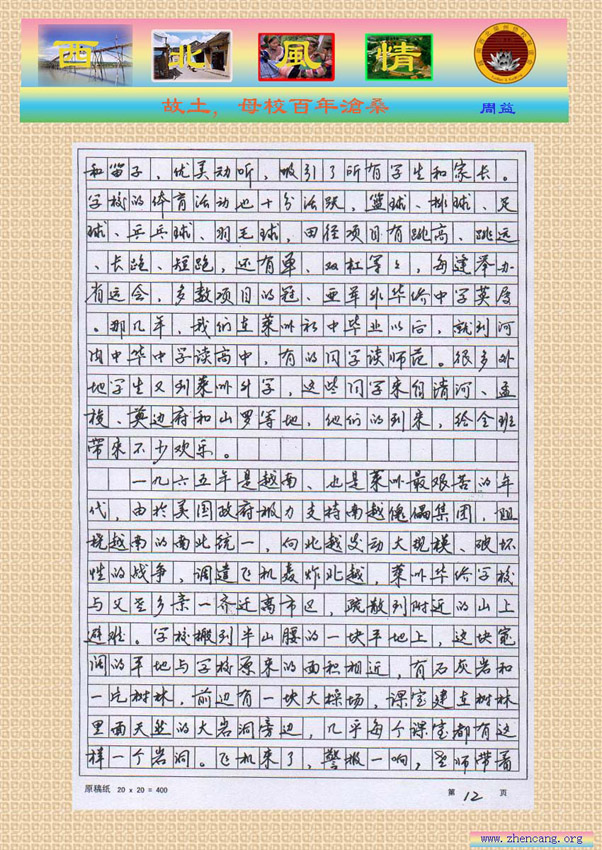 西北風情
故土，母校百年滄桑
周益
和笛子，优美动听，吸引了所有学生和家长。
学校的体育活动也十分活跃，篮球、排球、足
球、乒乓球、羽毛球，田径项目有跳高、跳远
、长跑、短跑，还有单、双杠等々，每逢举办
省运会，多数项目的冠、亚军非华侨中学莫属
。那几年，我们在莱州初中毕业以后，就到河
内中华中学读高中，有的同学读师范。很多外
地学生又到莱州升学，这些同学来自清河、孟
梭、奠边府和山罗等地，他们的到来，给全班
带来不少欢乐。
一九六五年是越南、也是莱州最艰苦的年
代，由於美国政府极力支持南越傀儡集团，阻
挠越南的南北统一，向北越发动大规模、破坏
性的战争，调遣飞机轰炸北越，莱州华侨学校
与父老乡亲一齐迁离市区，疏散到附近的山上
避难。学校搬到半山腰的一块平地上，这块宽
阔的平地与学校原来的面积相近，有石灰岩和
一片树林，前边有一块大操场，课室建在树林
里面天然的大岩洞旁边，几乎每个课室都有这
样一个岩洞。飞机来了，警报一响，老师带着
原稿纸 20 x 20 = 400
第 12 页
www.zhencang.org